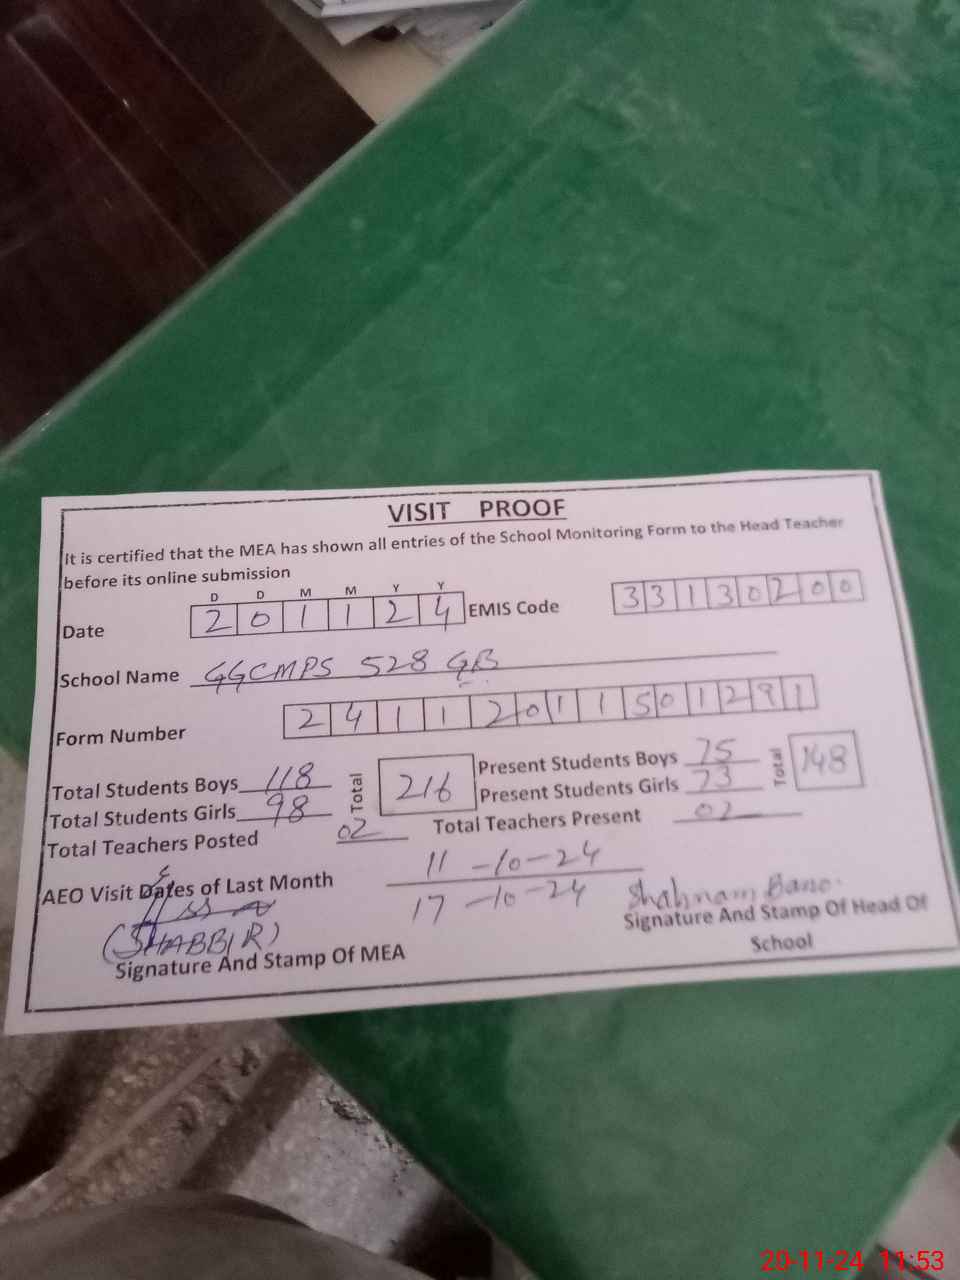 VISIT PROOF
It is certified that the MEA has shown all entries of the School Monitoring Form to the Head Teacher
before its online submission
D D M M Y Y
Date 2 0 1 1 2 4 EMIS Code 3 3 1 3 0 2 0 0
School Name GGCMPS 528 GB
Form Number 2 4 1 1 2 0 1 1 5 0 1 2 9 1
Total Students Boys 118 Total 216 Present Students Boys 75 Total 148
Total Students Girls 98 Present Students Girls 73
Total Teachers Posted 02 Total Teachers Present 02
AEO Visit Dates of Last Month 11-10-24
17-10-24
Shahnam Bano.
(SHABBIR)
Signature And Stamp Of MEA
Signature And Stamp Of Head Of
School
20-11-24 11:53